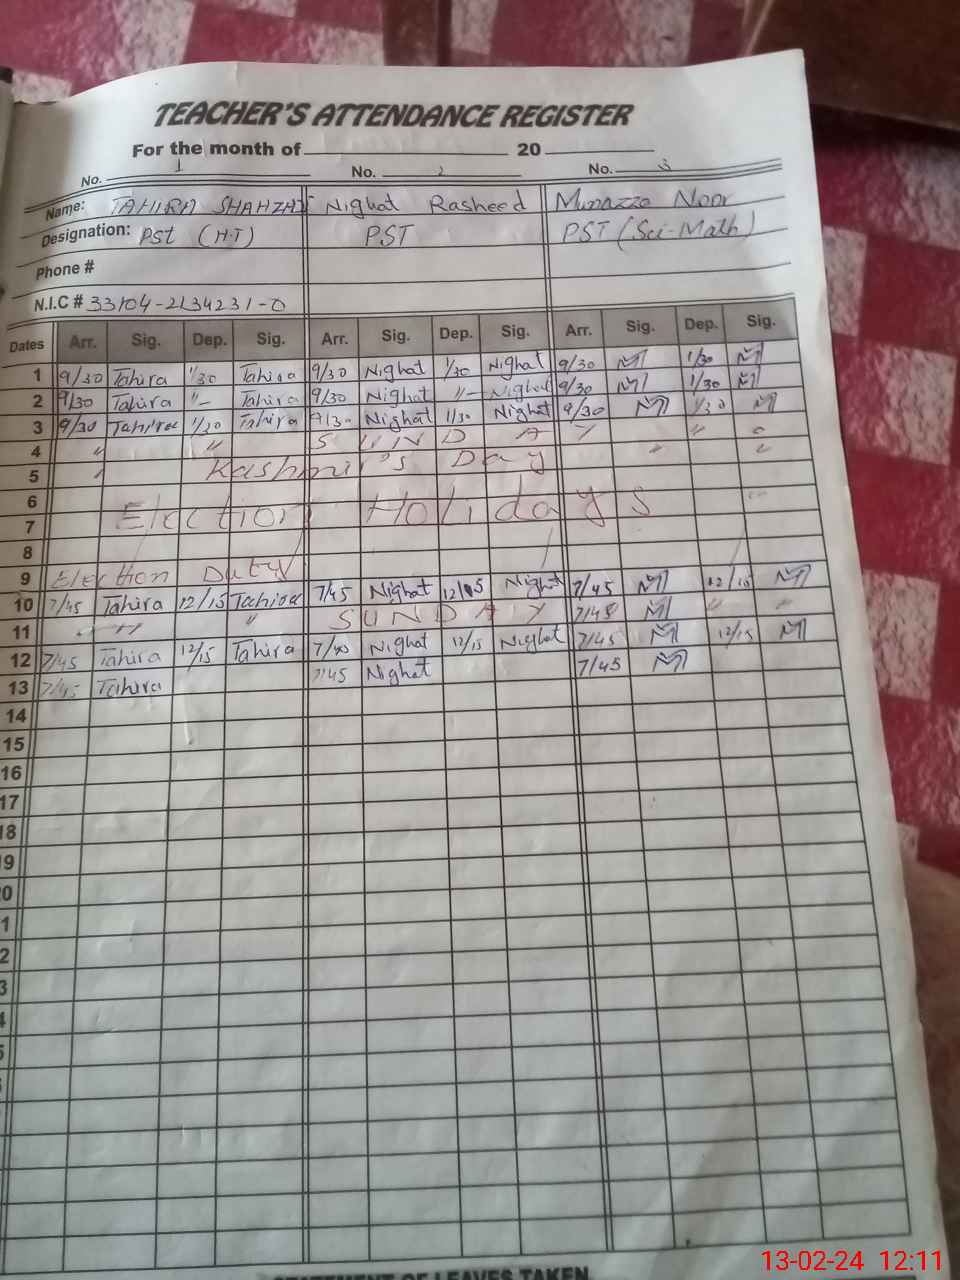 TEACHER'S ATTENDANCE REGISTER
For the month of 20
No. 1 No. 2 No. 3
Name: TAHIRA SHAHZAD Nighat Rasheed Munazza Noor
Designation: PST (H.T) PST PST (Sci-Math)
Phone #
N.I.C # 33104-2134231-0
Dates Arr. Sig. Dep. Sig. Arr. Sig. Dep. Sig. Arr. Sig. Dep. Sig.
1 9/30 Tahira 1/30 Tahira 9/30 Nighat 1/30 Nighat 9/30 1/30
2 9/30 Tahira "- Tahira 9/30 Nighat "- Nighat 9/30 1/30
3 9/30 Tahira 1/30 Tahira 9/30 Nighat 1/30 Nighat 9/30 1/30
4 " " SUNDAY " "
5 " Kashmir's Day " "
6
7 Election Holidays
8
9 Election Duty
10 7/45 Tahira 12/15 Tahira 7/45 Nighat 12/15 Nighat 7/45 12/15
11 " " SUNDAY 7/45 " "
12 7/45 Tahira 12/15 Tahira 7/45 Nighat 12/15 Nighat 7/45 12/15
13 7/45 Tahira 7/45 Nighat 7/45
14
15
16
17
18
19
0
1
2
3
4
5
STATEMENT OF LEAVES TAKEN
13-02-24 12:11